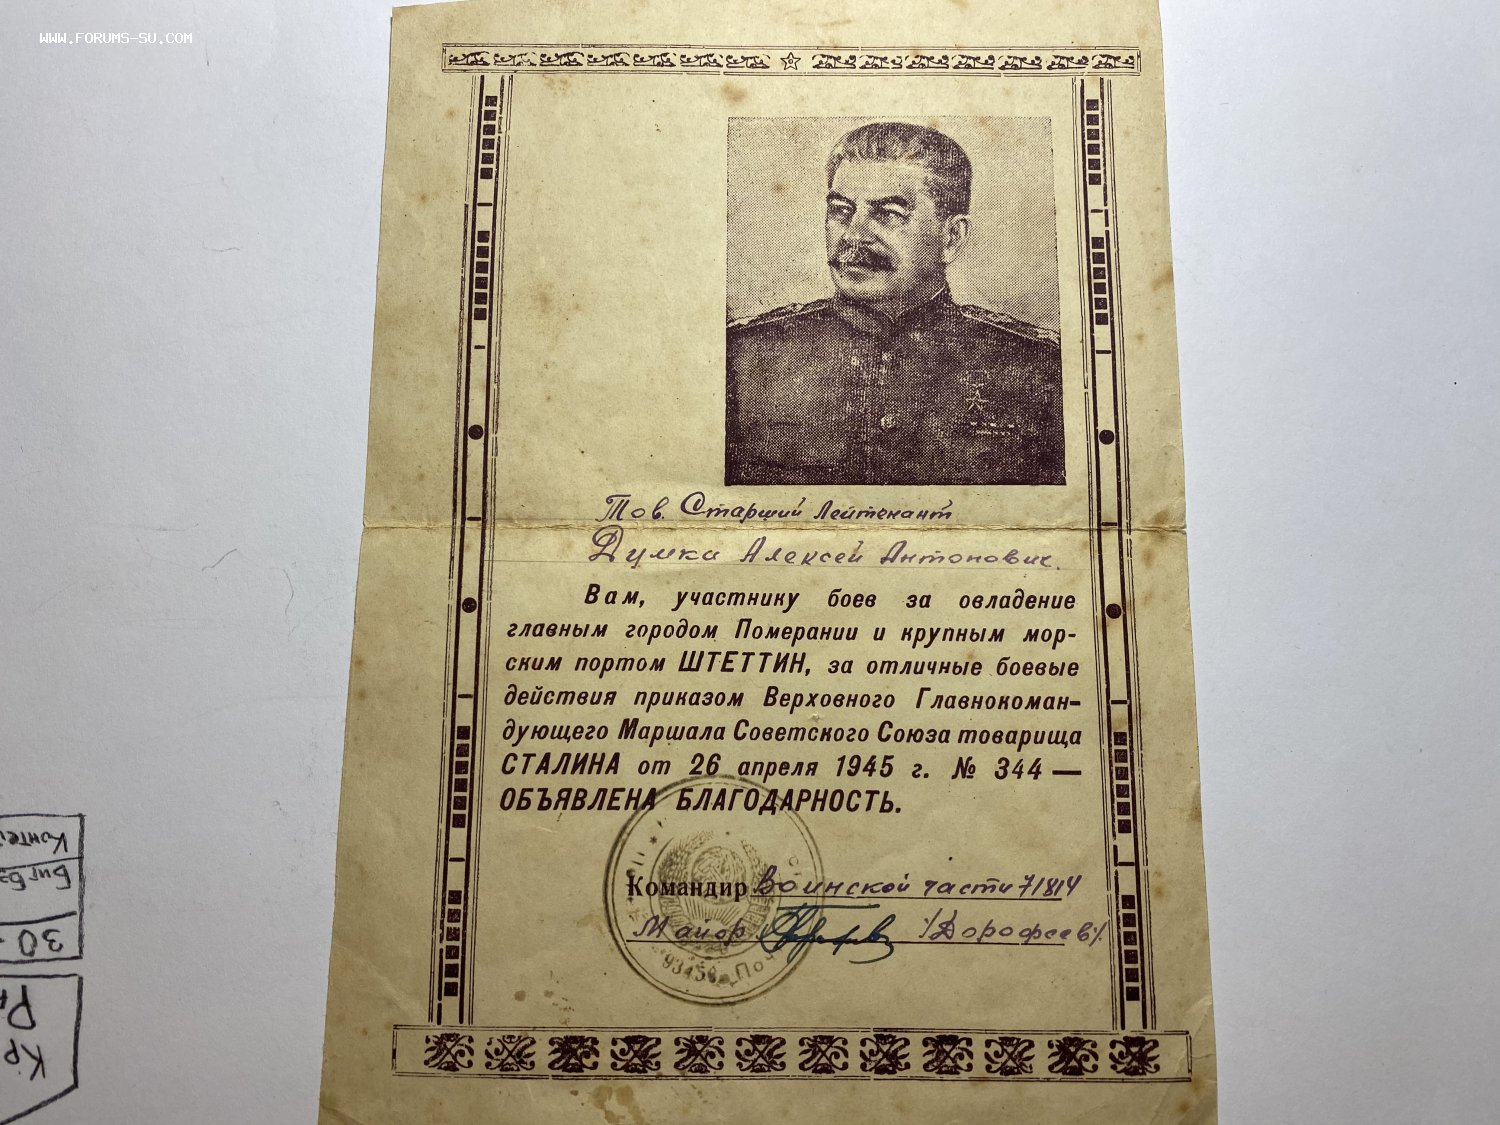 WWW.FORUMS-SU.COM
Тов. Старший Лейтенант
Думка Алексей Антонович.
Вам, участнику боев за овладение
главным городом Померании и крупным мор-
ским портом ШТЕТТИН, за отличные боевые
действия приказом Верховного Главнокоман-
дующего Маршала Советского Союза товарища
СТАЛИНА от 26 апреля 1945 г. № 344 —
ОБЪЯВЛЕНА БЛАГОДАРНОСТЬ.
Командир воинской части 71814
Майор /Дорофеев/.
30
Кр